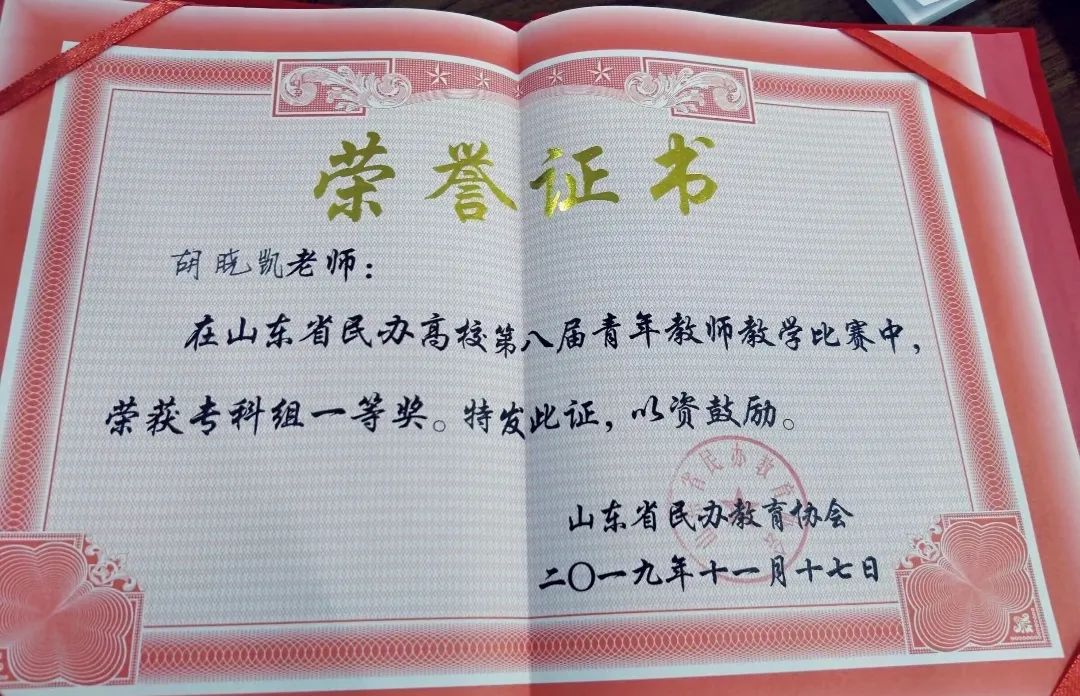 荣誉证书
胡晓凯老师：
在山东省民办高校第八届青年教师教学比赛中，
荣获专科组一等奖。特发此证，以资鼓励。
山东省民办教育协会
二〇一九年十一月十七日